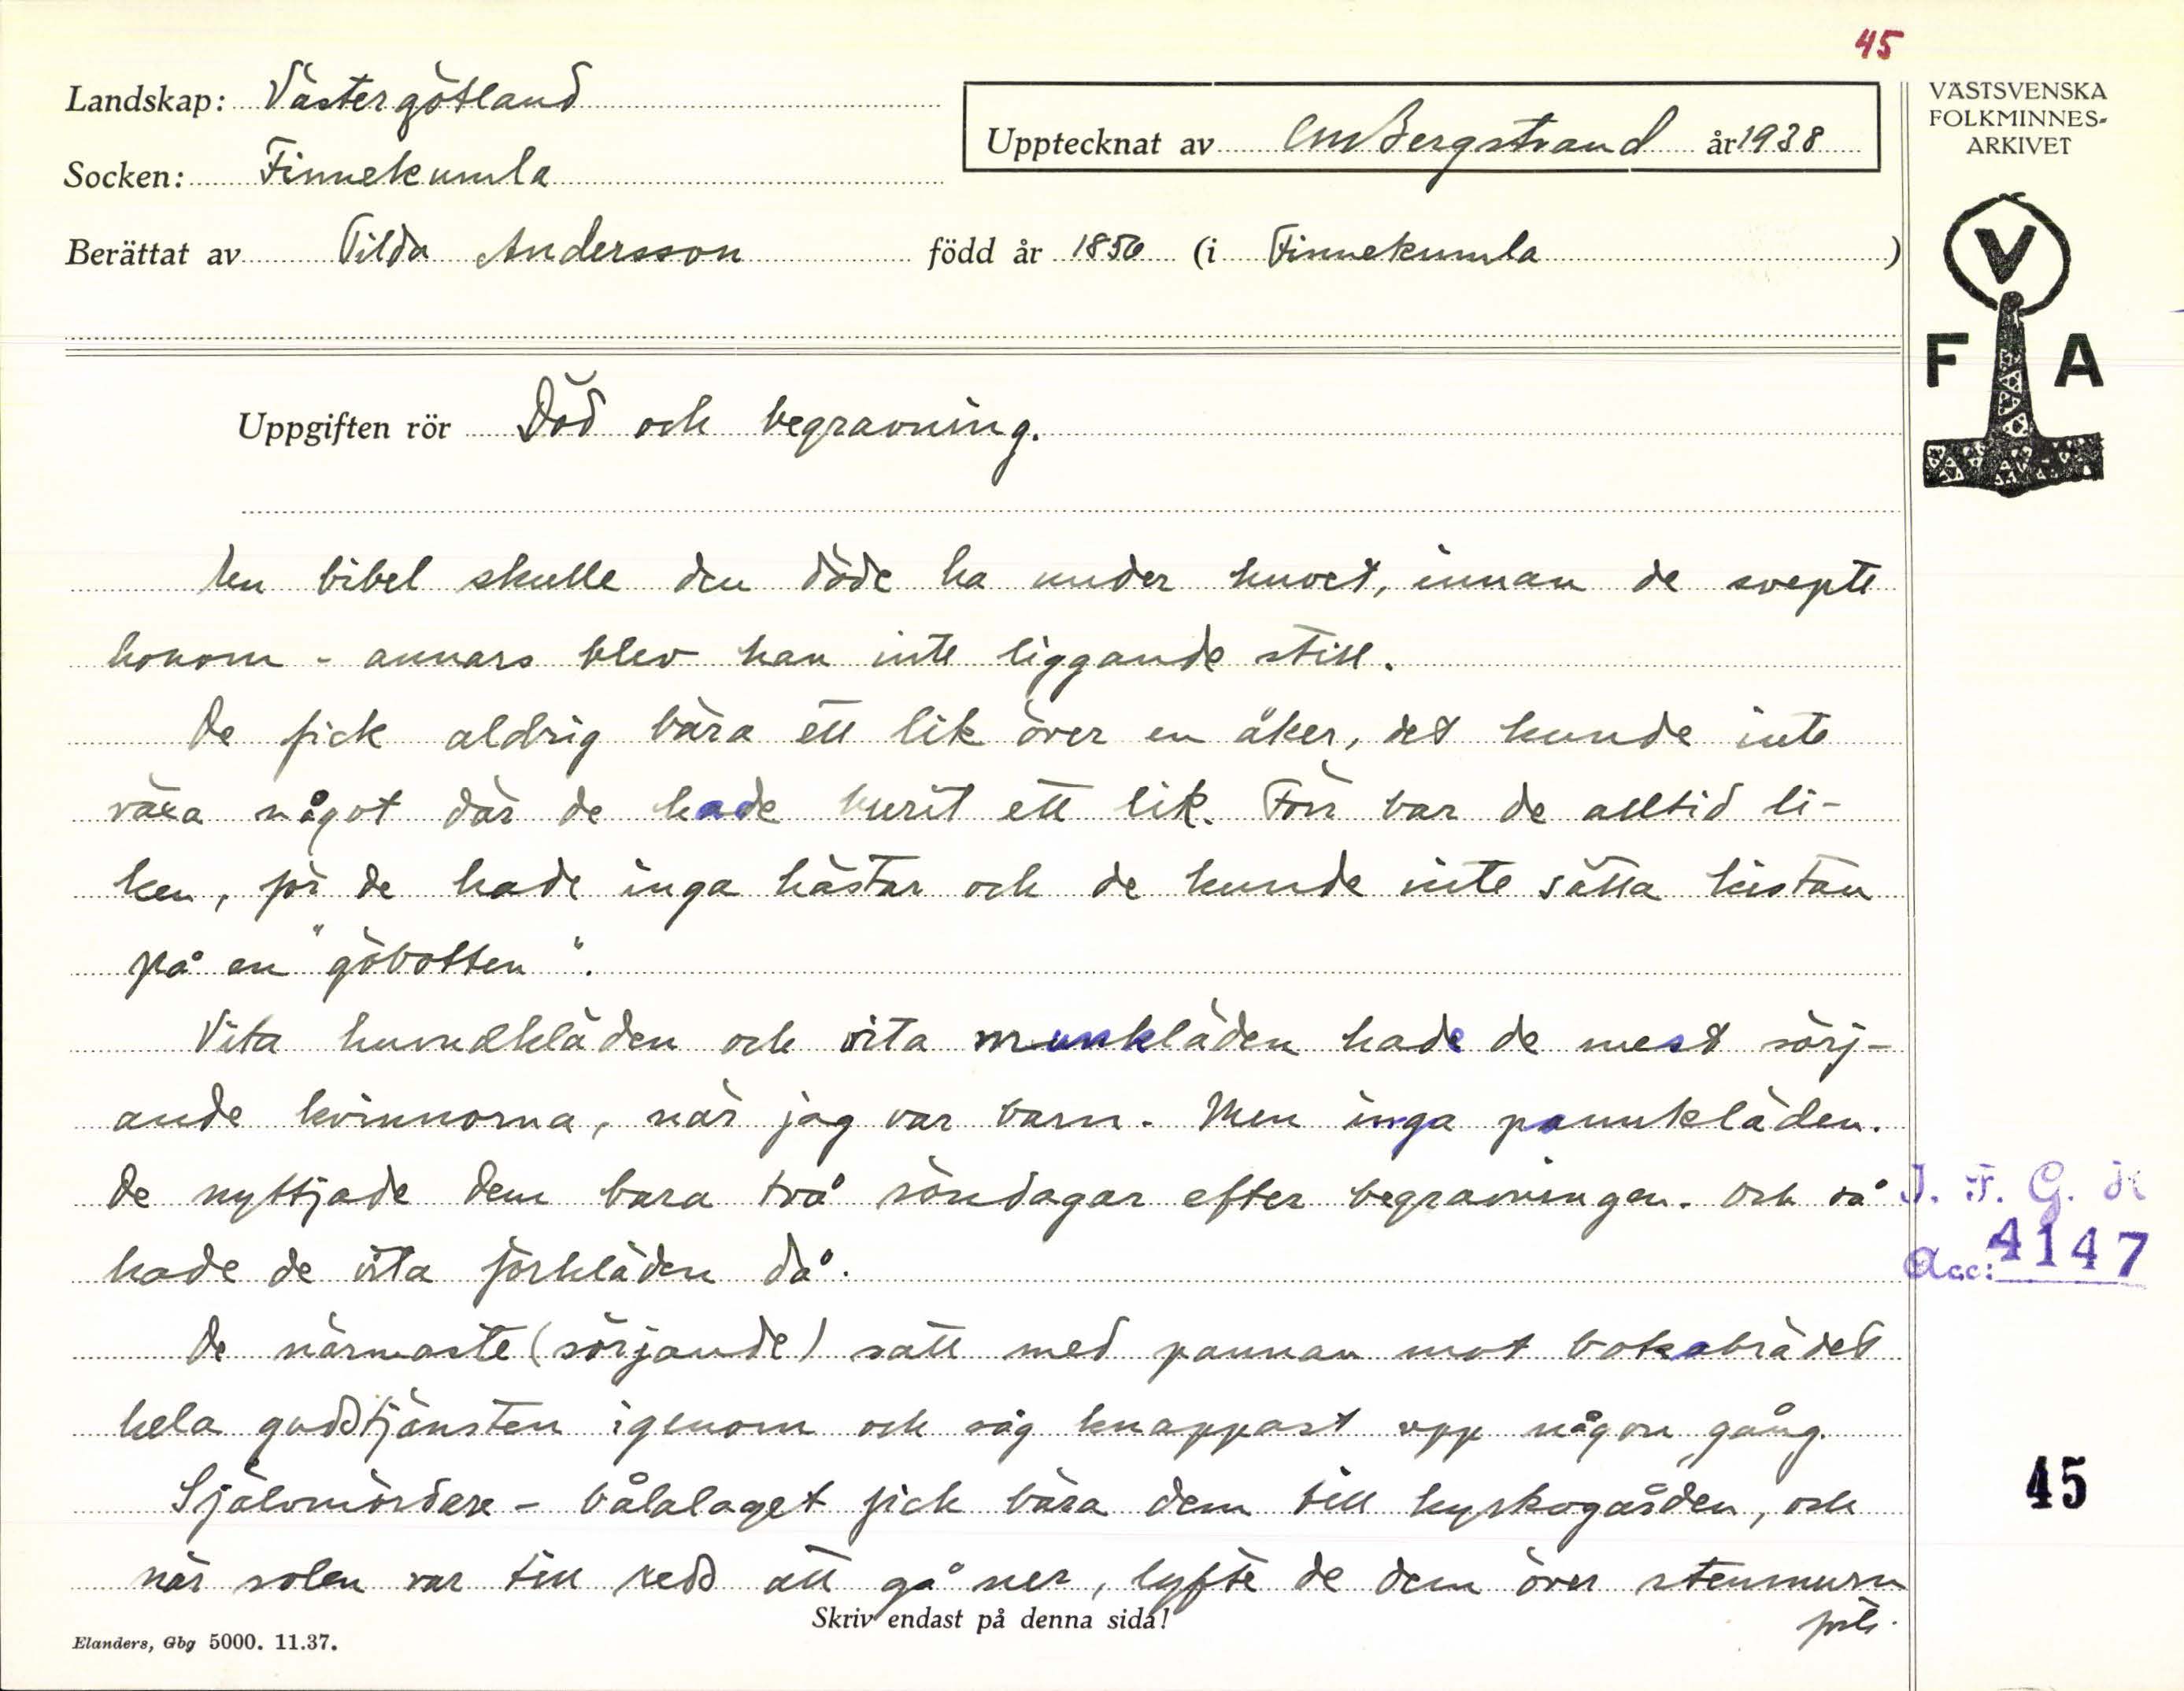 45
Landskap: Västergötland
Upptecknat av CM Bergstrand år 1938
VÄSTSVENSKA
FOLKMINNES-
ARKIVET
Socken: Finnekumla
Berättat av Tilda Andersson född år 1856 (i Finnekumla)
V
F A
Uppgiften rör Död och begravning.
En bibel skulle den döde ha under huvet, innan de svepte
honom - annars blev han inte liggande still.
De fick aldrig bära ett lik över en åker, det kunde inte
växa något där de hade burit ett lik. Förr bar de alltid li-
ken, för de hade inga hästar och de kunde inte sätta kistan
på en "göbotten".
Vita huvudkläden och vita munkläden hade de mest sörj-
ande kvinnorna, när jag var barn. Men inga pannkläden.
De nyttjade dem bara två söndagar efter begravningen. Och så
hade de vita förkläden då.
De närmaste (sörjande) satt med pannan mot bokabrädet
hela gudstjänsten igenom och såg knappast upp någon gång.
Självmördare - bålalaget fick bära dem till kyrkogården, och
när solen var till redd att gå ner, lyfte de dem över stenmuren
forts.
I. F. G. H
Acc: 4147
45
Skriv endast på denna sida!
Elanders, Gbg 5000. 11.37.